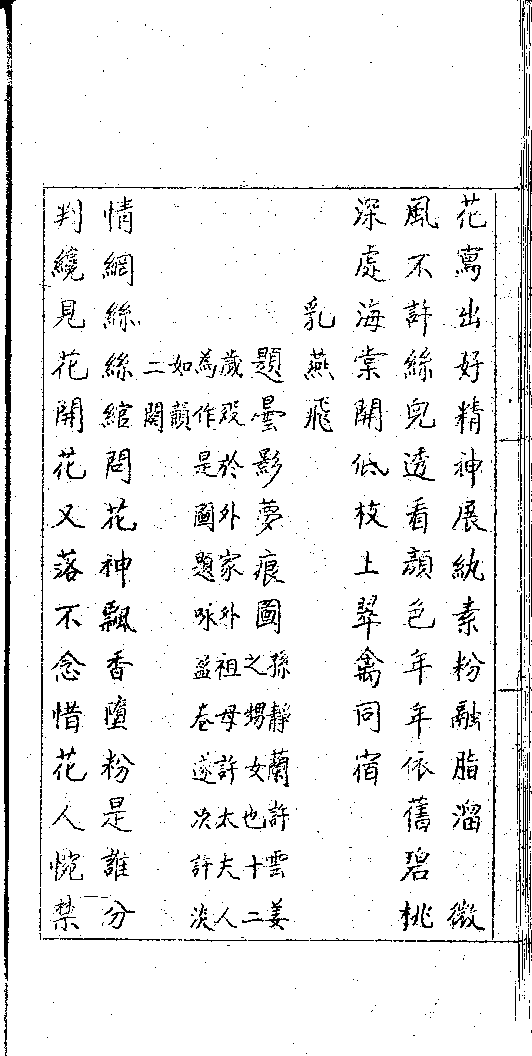 花寫出好精神展紈素粉融脂溜　微
風不許絲兒透看顏色年年依舊碧桃
深處海棠開低枝上翠禽同宿
乳燕飛
題曇影夢痕圖
孫靜蘭許雲姜
之甥女也十二
歲歿於外家外祖母許太夫人
為作是圖題咏盈卷遂次許淡
如韻
二闋
情網絲絲綰問花神飄香墮粉是誰分
判纔見花開花又落不念惜花人惋禁